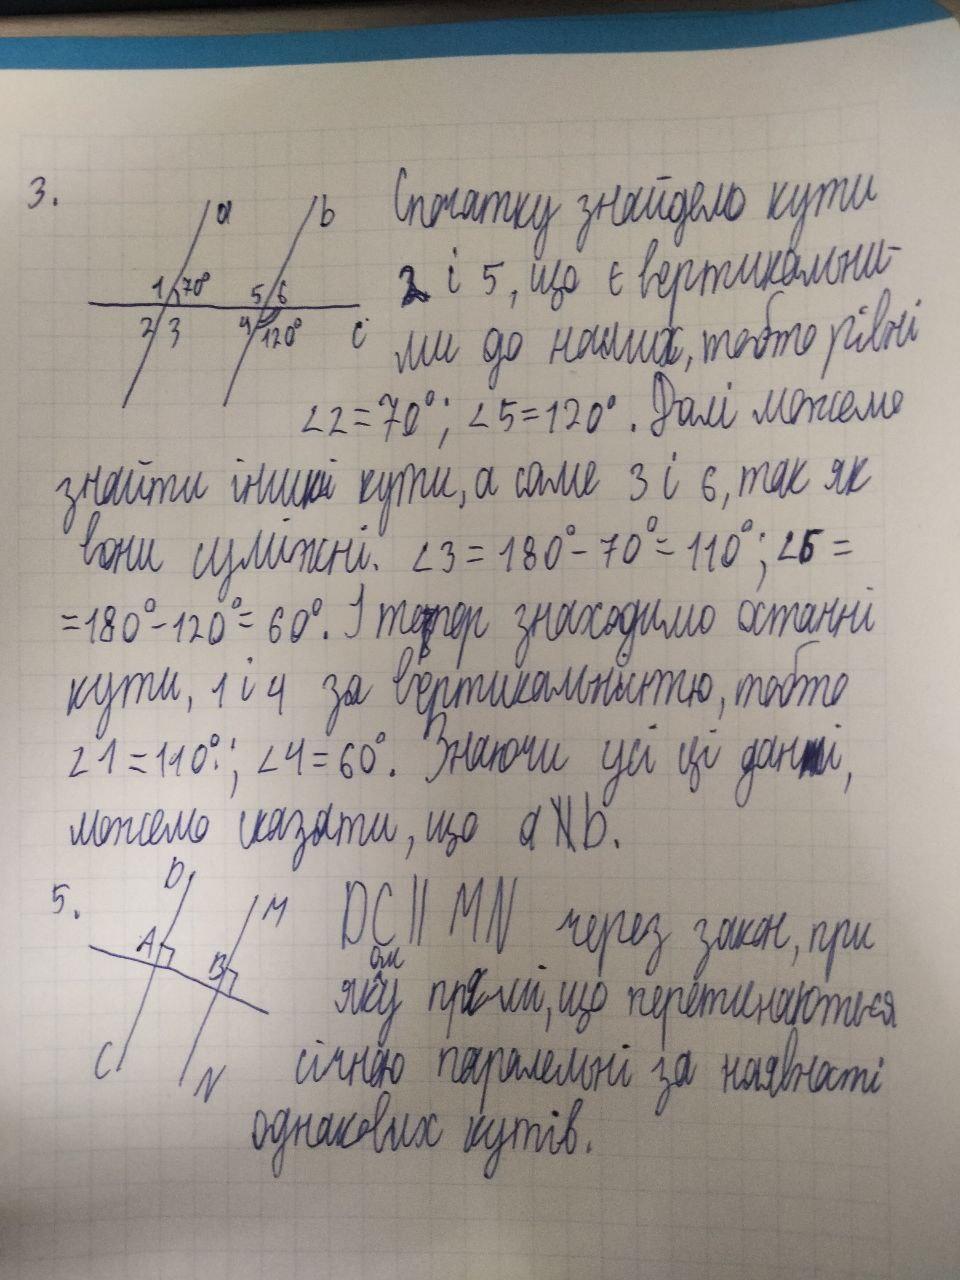 3.
a
b
1 70°
5 6
2 3
4 120°
c
Спочатку знайдемо кути
2 і 5, що є вертикальни-
ми до наших, тобто рівні
∠2=70°; ∠5=120°. Далі можемо
знайти інші кути, а саме 3 і 6, так як
вони суміжні. ∠3=180°-70°=110°; ∠6=
=180°-120°=60°. І тепер знаходимо останні
кути, 1 і 4 за вертикальністю, тобто
∠1=110°; ∠4=60°. Знаючи усі ці дані,
можемо сказати, що a∦b.
5.
D
M
A
B
C
N
DC || MN через закон, при
якому прямі, що перетинаються
січною паралельні за наявності
однакових кутів.